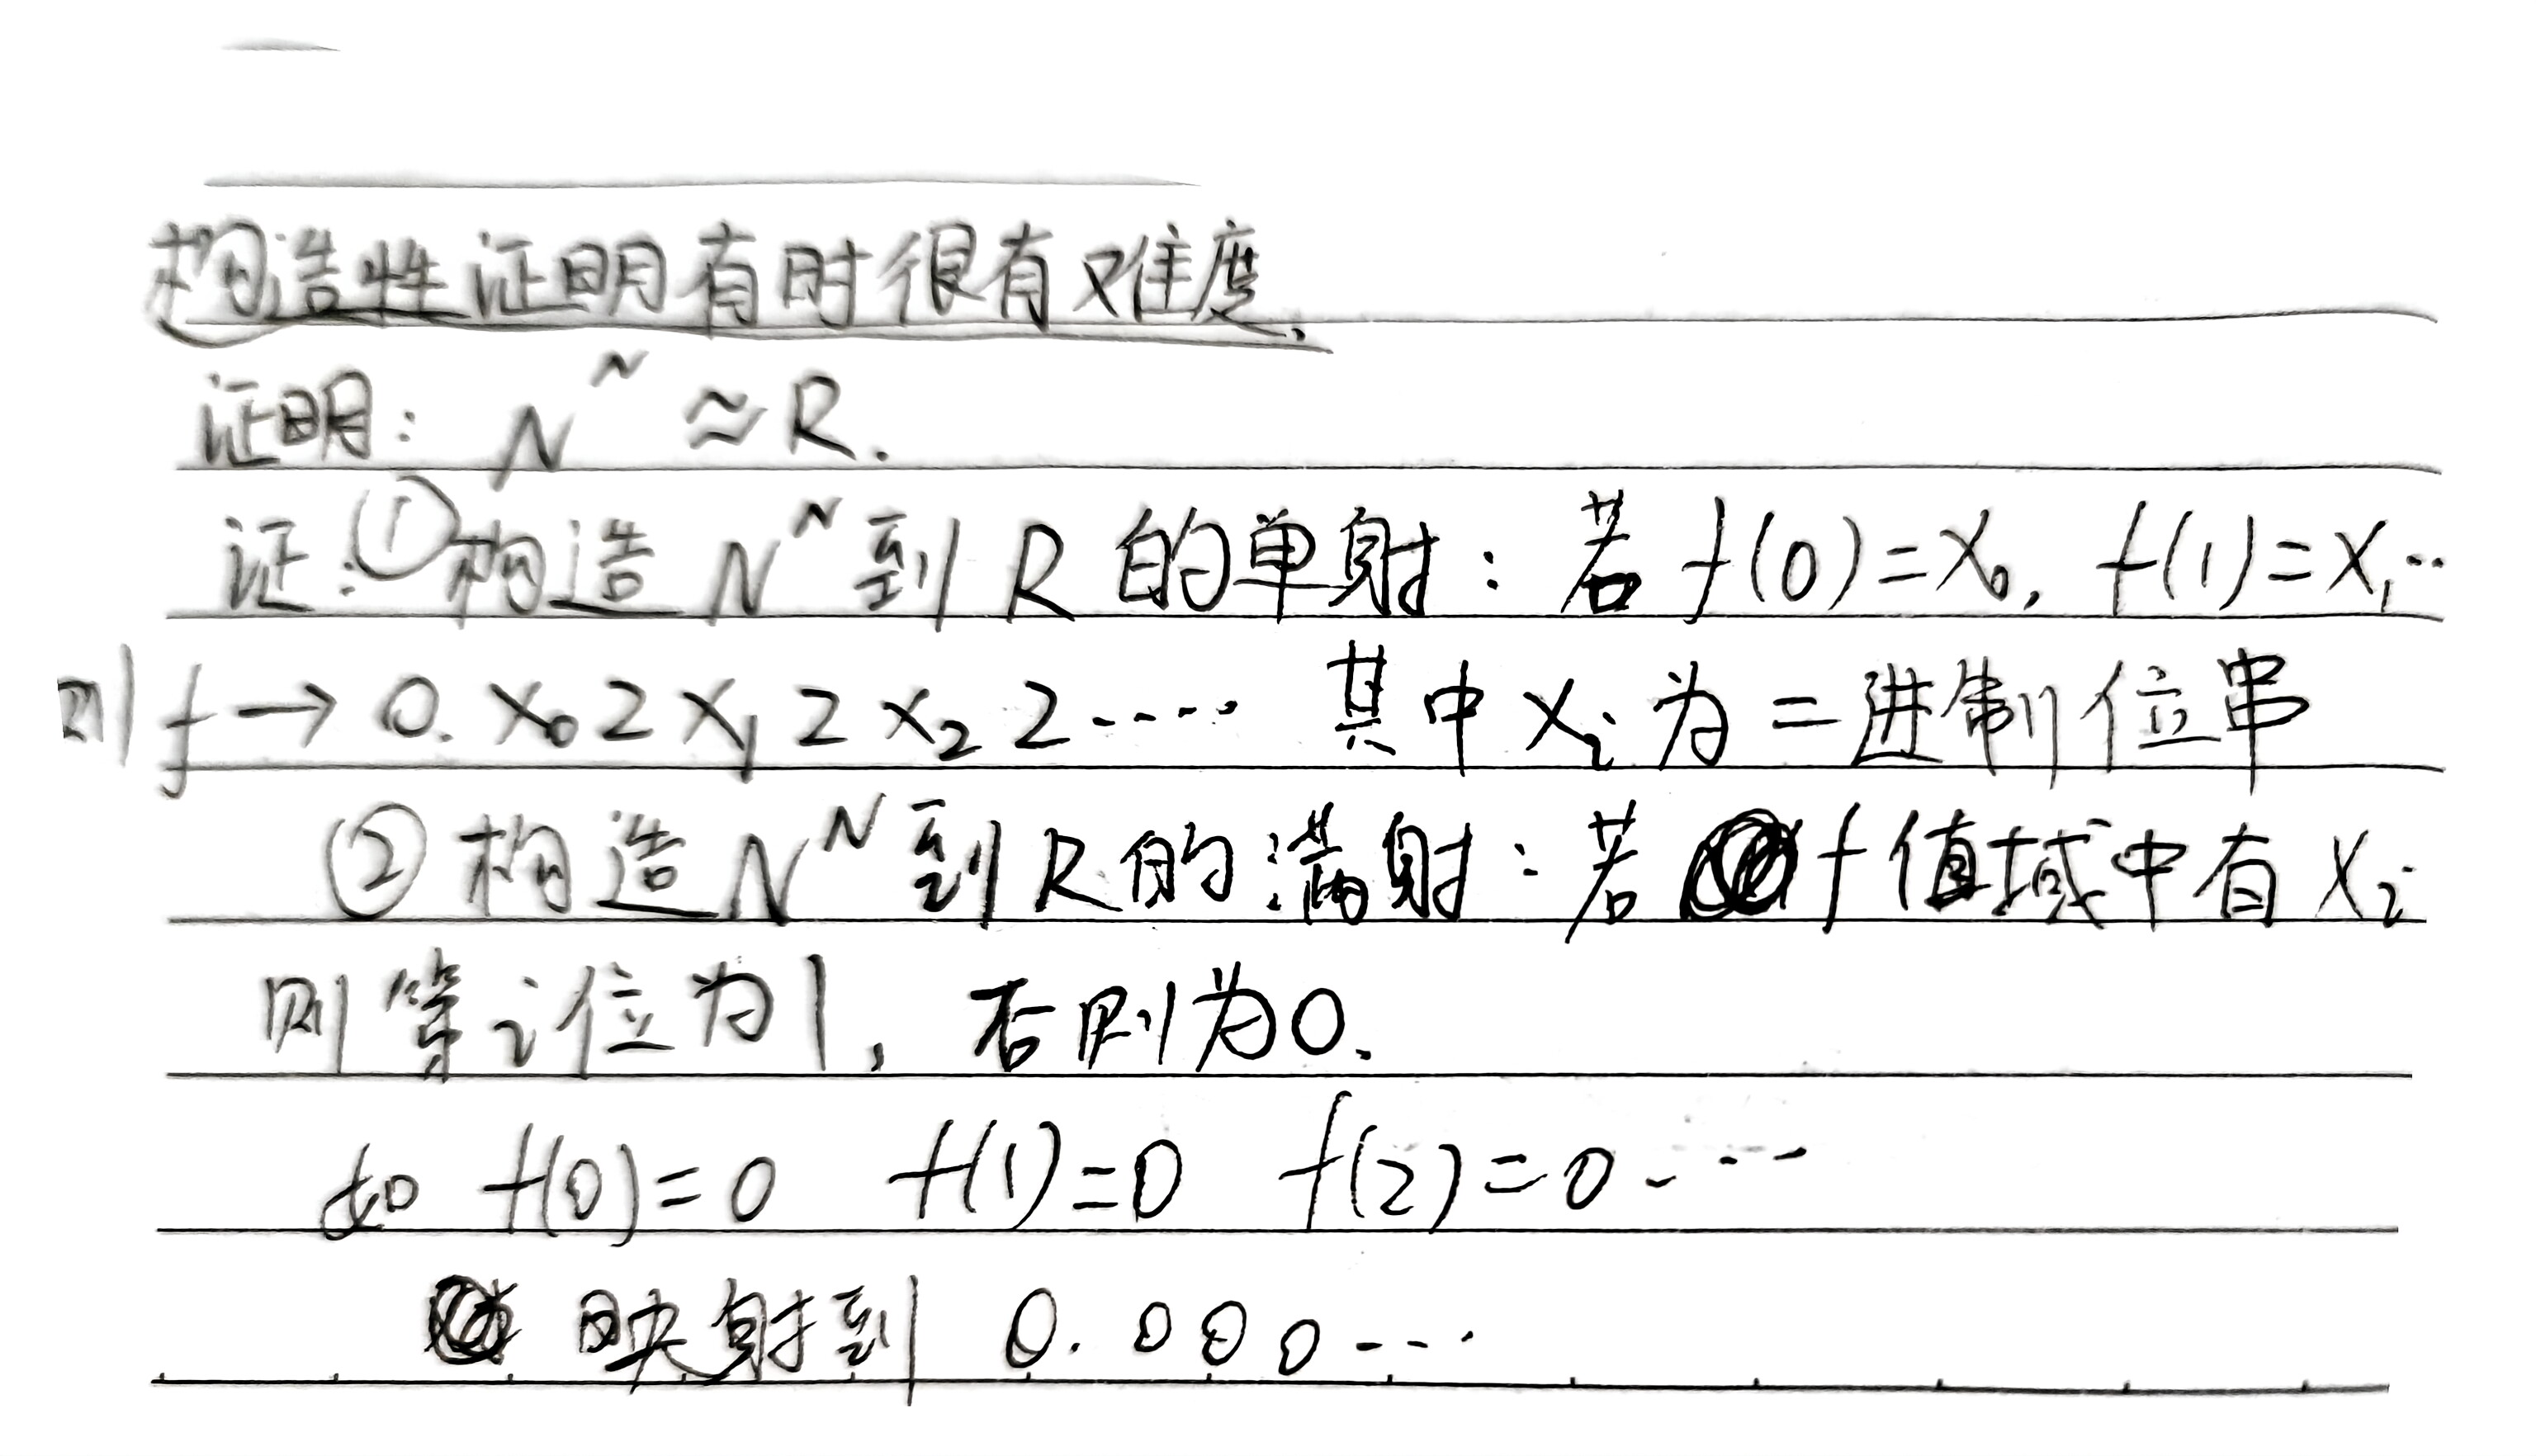 构造性证明有时很有难度.
证明: N^N ≈ R.
证: ① 构造 N^N 到 R 的单射: 若 f(0)=x₀, f(1)=x₁…
则 f → 0. x₀ 2 x₁ 2 x₂ 2 ····· 其中 xᵢ 为二进制位串
② 构造 N^N 到 R 的满射: 若 f 值域中有 xᵢ
则第 i 位为1, 否则为0.
如 f(0)=0 f(1)=0 f(2)=0 ····
映射到 0.000···